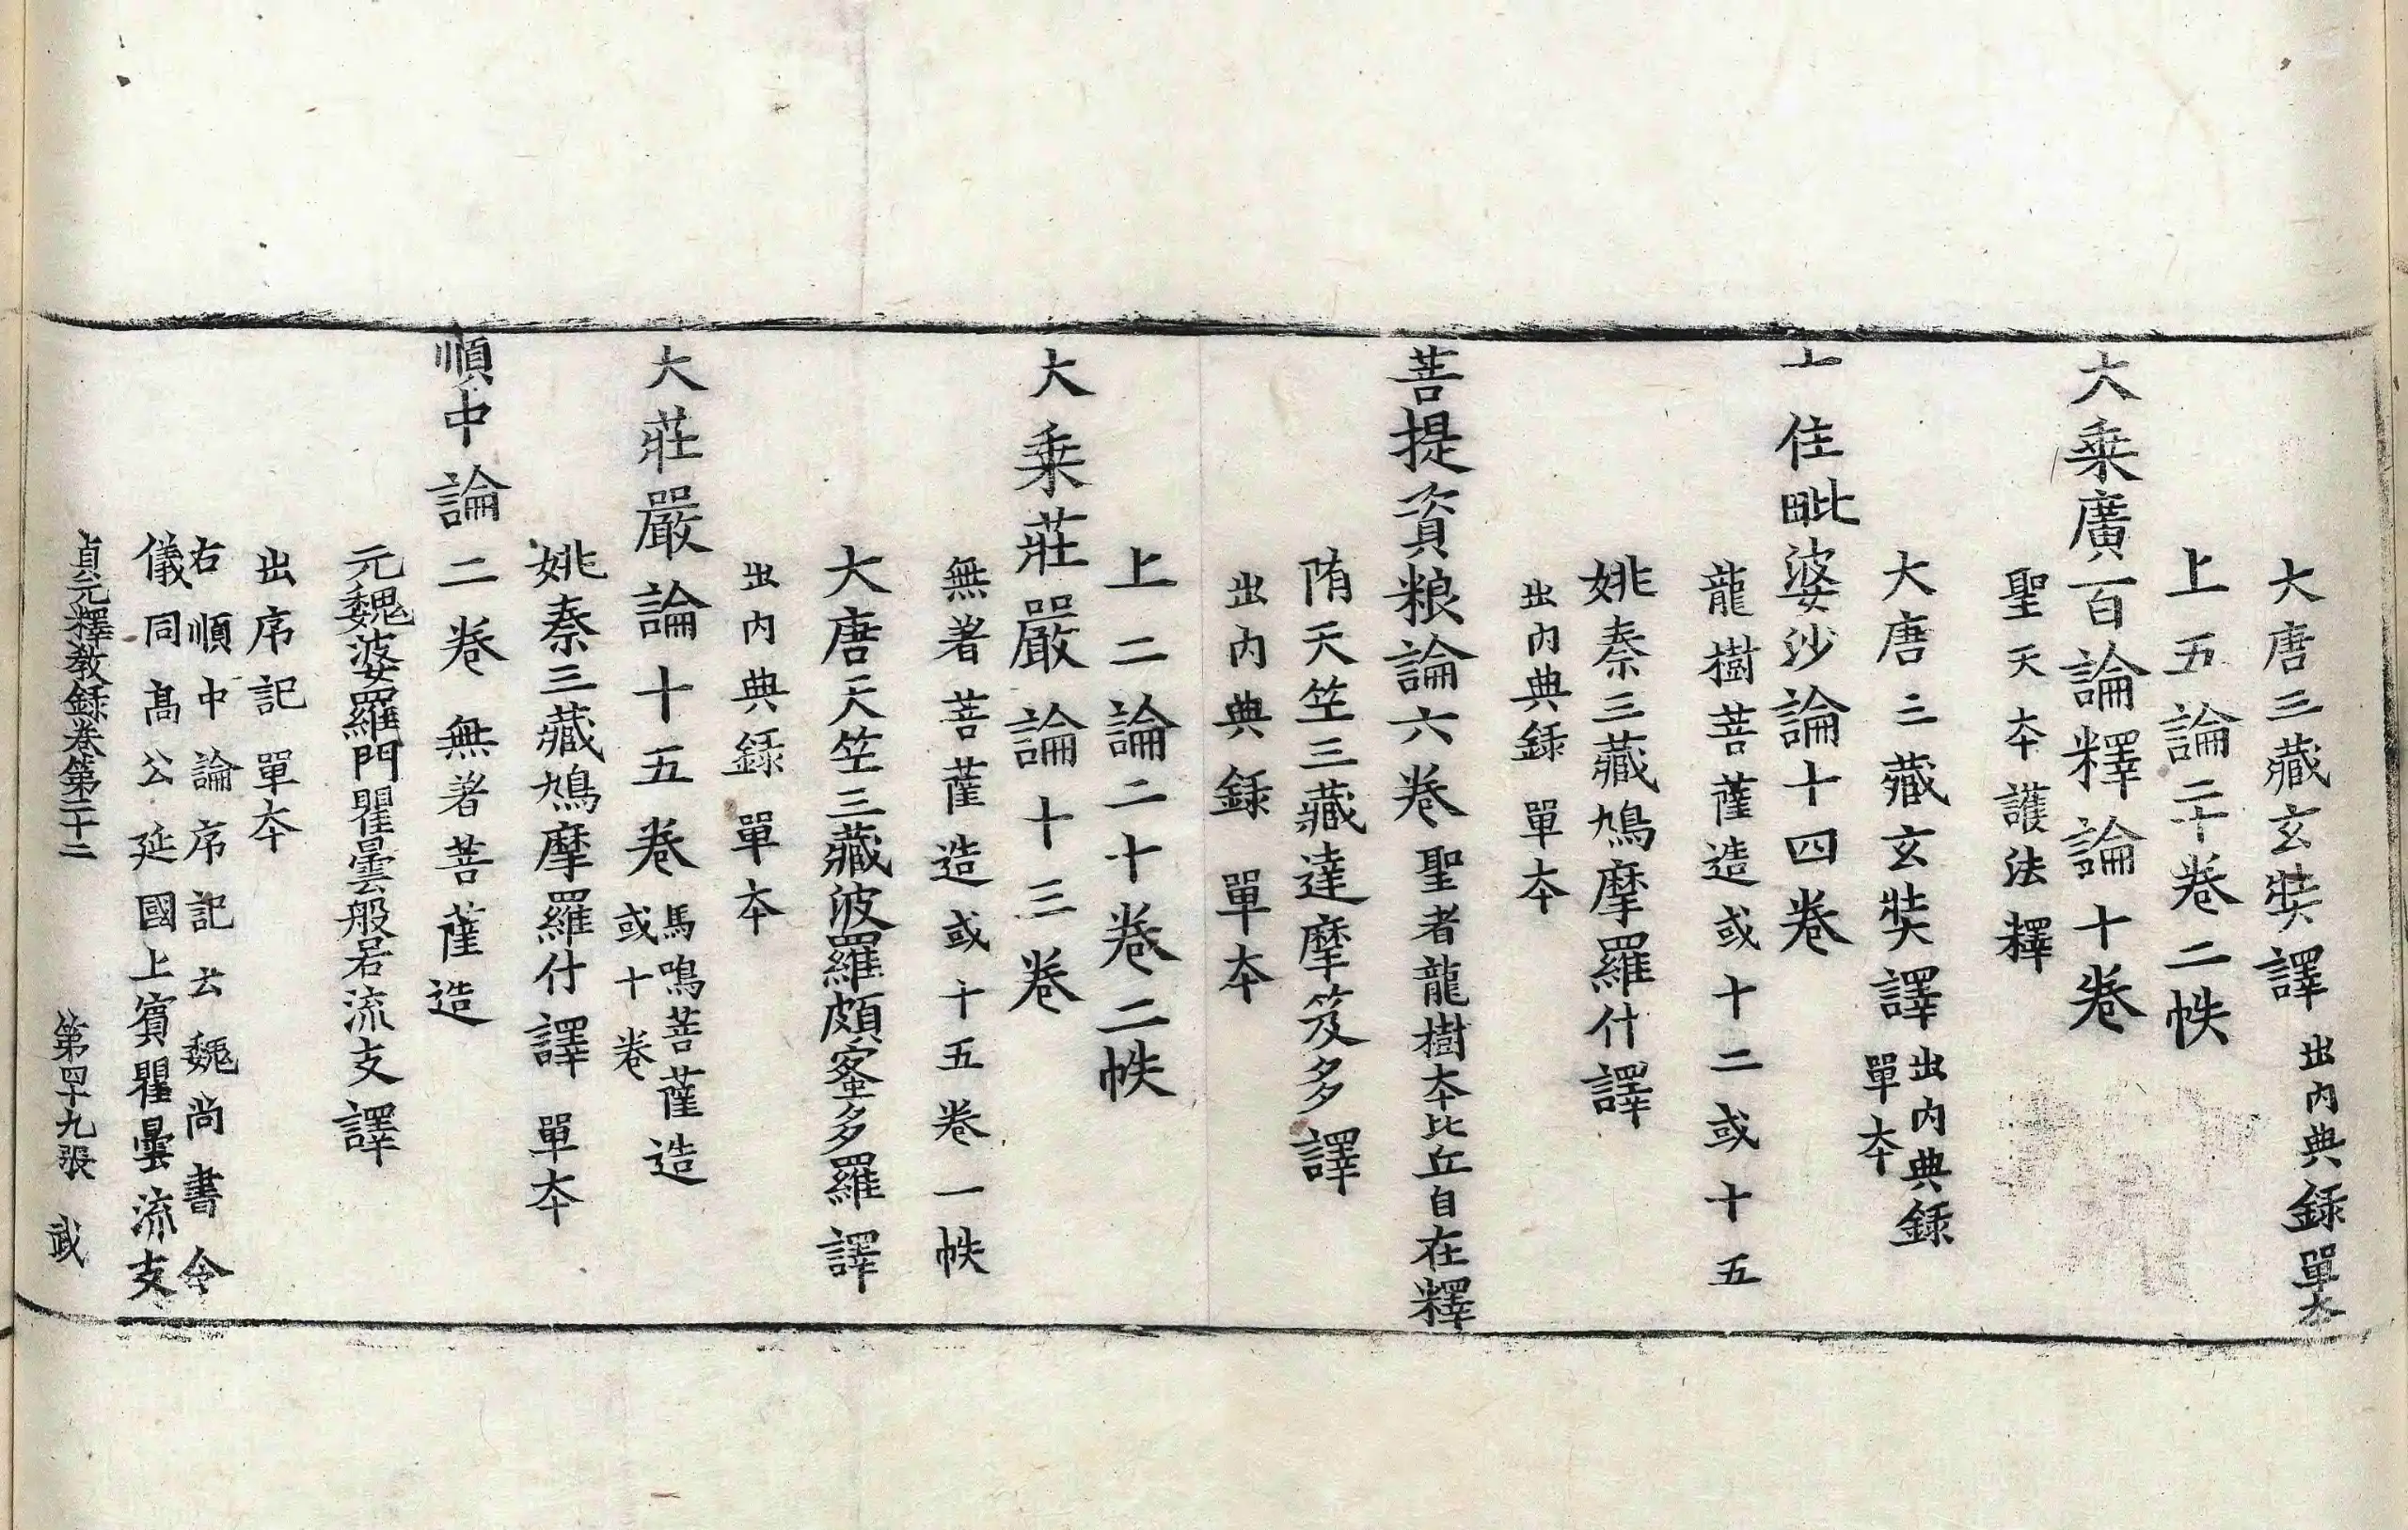 大唐三藏玄奘譯出內典録單夲
上五論二十卷二帙
大乗廣百論釋論十卷
聖天夲護法釋
大唐三藏玄奘譯出內典録單夲
十住毗婆沙論十四卷
龍樹菩薩造或十二或十五
姚秦三藏鳩摩羅什譯
出內典録單夲
菩提資粮論六卷聖者龍樹夲比丘自在釋
隋天笠三藏達摩笈多譯
出內典録單夲
上二論二十卷二帙
大乗莊嚴論十三卷
無著菩薩造或十五卷一帙
大唐天笠三藏波羅頗蜜多羅譯
出內典録單夲
大莊嚴論十五卷馬鳴菩薩造或十卷
姚秦三藏鳩摩羅什譯單夲
順中論二卷無著菩薩造
元魏婆羅門瞿曇般若流支譯
出序記單夲
右順中論序記云魏尚書令
儀同髙公延國上賓瞿曇流支
貞元釋教録卷第二十二 第四十九張 武